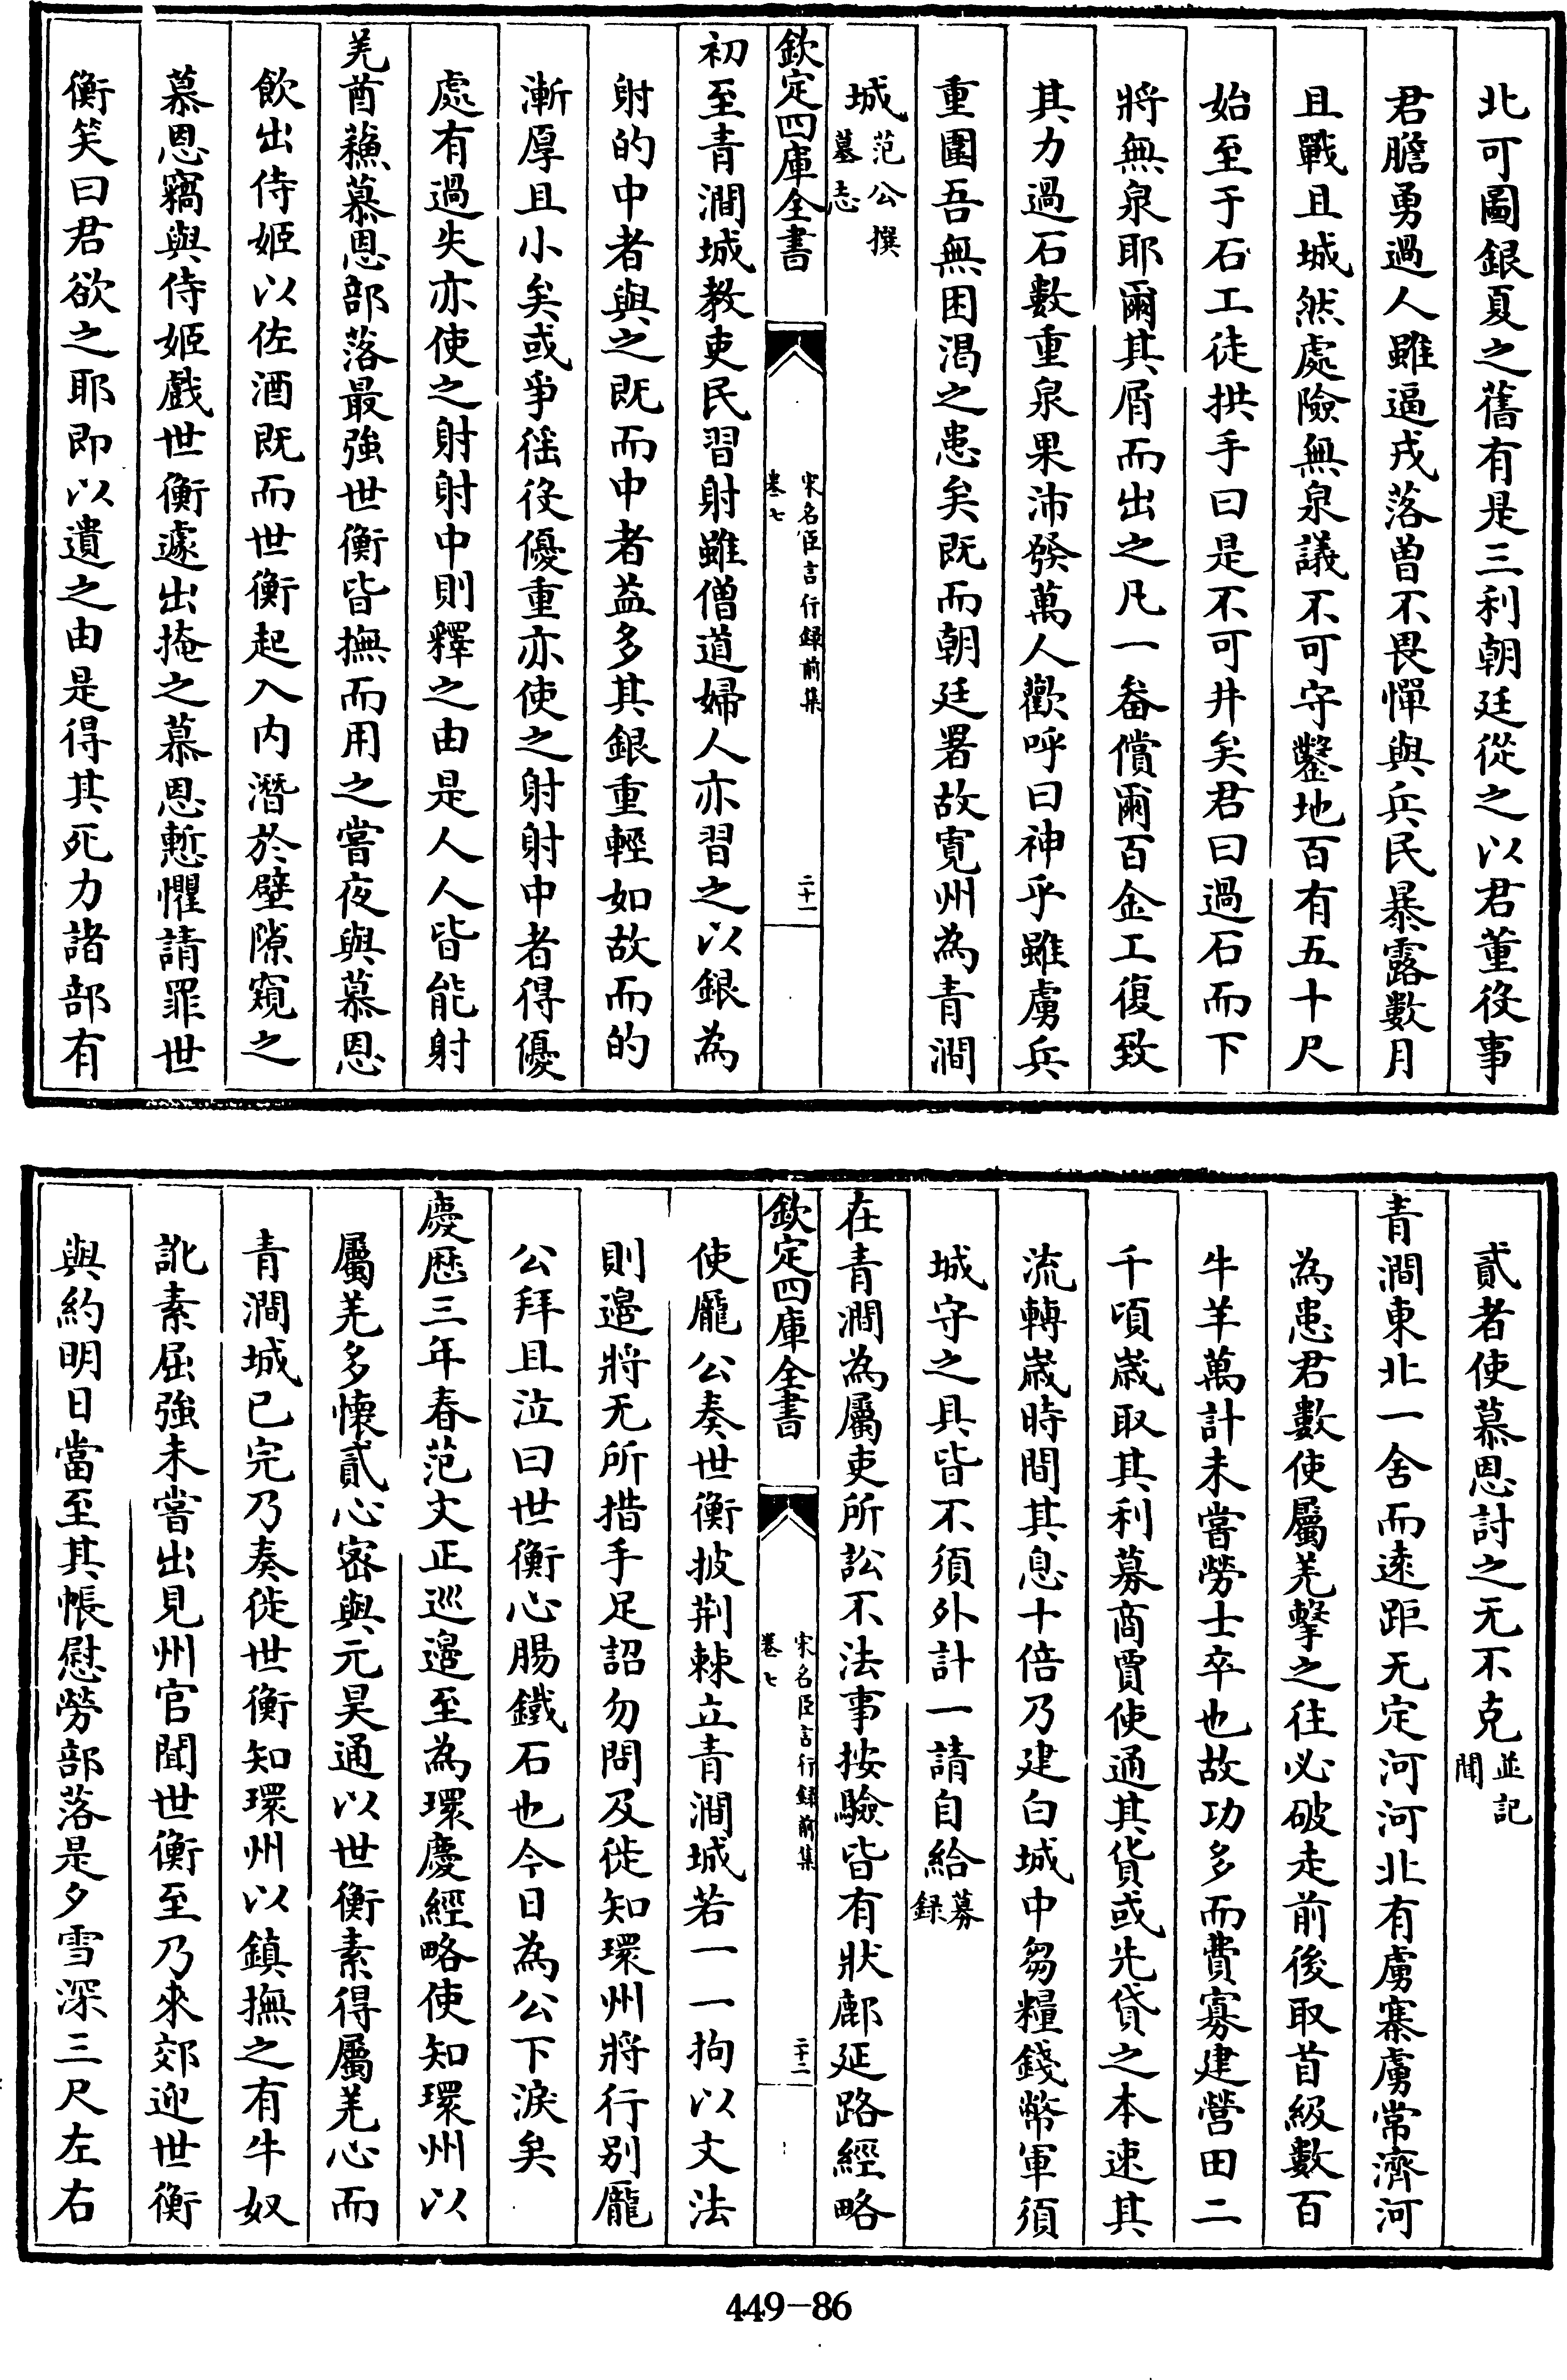 北可圖銀夏之舊有是三利朝廷從之以君董役事
君膽勇過人雖逼戎落曾不畏憚與兵民暴露數月
且戰且城然處險無泉議不可守鑿地百有五十尺
始至于石工徒拱手曰是不可井矣君曰過石而下
將無泉耶爾其屑而出之凡一畚償爾百金工復致
其力過石數重泉果沛發萬人歡呼曰神乎雖虜兵
重圍吾無困渇之患矣既而朝廷署故寛州為青澗
城范公撰墓志
欽定四庫全書
宋名臣言行録前集
卷七
二十一
初至青澗城教吏民習射雖僧道婦人亦習之以銀為
射的中者與之既而中者益多其銀重輕如故而的
漸厚且小矣或爭徭役優重亦使之射射中者得優
處有過失亦使之射射中則釋之由是人人皆能射
羌酋蘓慕恩部落最強世衡皆撫而用之嘗夜與慕恩
飲出侍姬以佐酒既而世衡起入内潛於壁隙窺之
慕恩竊與侍姬戲世衡遽出掩之慕恩慙懼請罪世
衡笑曰君欲之耶即以遺之由是得其死力諸部有
貳者使慕恩討之无不克並記聞
青澗東北一舍而逺距无定河河北有虜寨虜常濟河
為患君數使屬羌擊之往必破走前後取首級數百
牛羊萬計未嘗勞士卒也故功多而費寡建營田二
千頃嵗取其利募商賈使通其貨或先貸之本速其
流轉嵗時間其息十倍乃建白城中芻糧錢幣軍須
城守之具皆不須外計一請自給募録
在青澗為屬吏所訟不法事按驗皆有狀鄜延路經略
欽定四庫全書
宋名臣言行録前集
卷七
二十二
使龐公奏世衡披荆棘立青澗城若一一拘以文法
則邉將无所措手足詔勿問及徙知環州將行别龐
公拜且泣曰世衡心腸鐵石也今日為公下淚矣
慶厯三年春范文正巡邉至為環慶經略使知環州以
屬羌多懷貳心宻與元昊通以世衡素得屬羌心而
青澗城已完乃奏徙世衡知環州以鎮撫之有牛奴
訛素屈強未嘗出見州官聞世衡至乃來郊迎世衡
與約明日當至其帳慰勞部落是夕雪深三尺左右
449-86